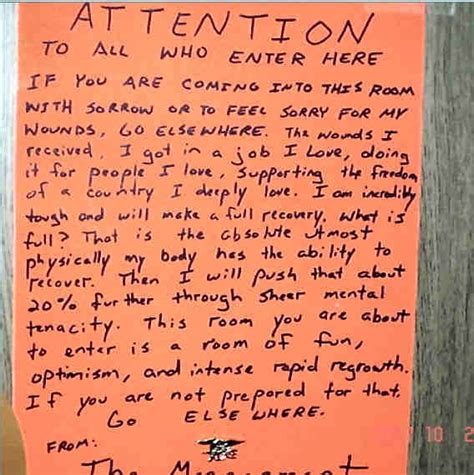 ATTENTION
TO ALL WHO ENTER HERE
IF YOU ARE COMING INTO THIS ROOM
WITH SORROW OR TO FEEL SORRY FOR MY
WOUNDS, GO ELSEWHERE. The wounds I
received, I got in a job I love, doing
it for people I love, supporting the freedom
of a country I deeply love. I am incredibly
tough and will make a full recovery. What is
full? That is the absolute utmost
physically my body has the ability to
recover. Then I will push that about
20% further through sheer mental
tenacity. This room you are about
to enter is a room of fun,
optimism, and intense rapid regrowth.
If you are not prepared for that,
GO ELSEWHERE.
FROM:
The Management
10 2